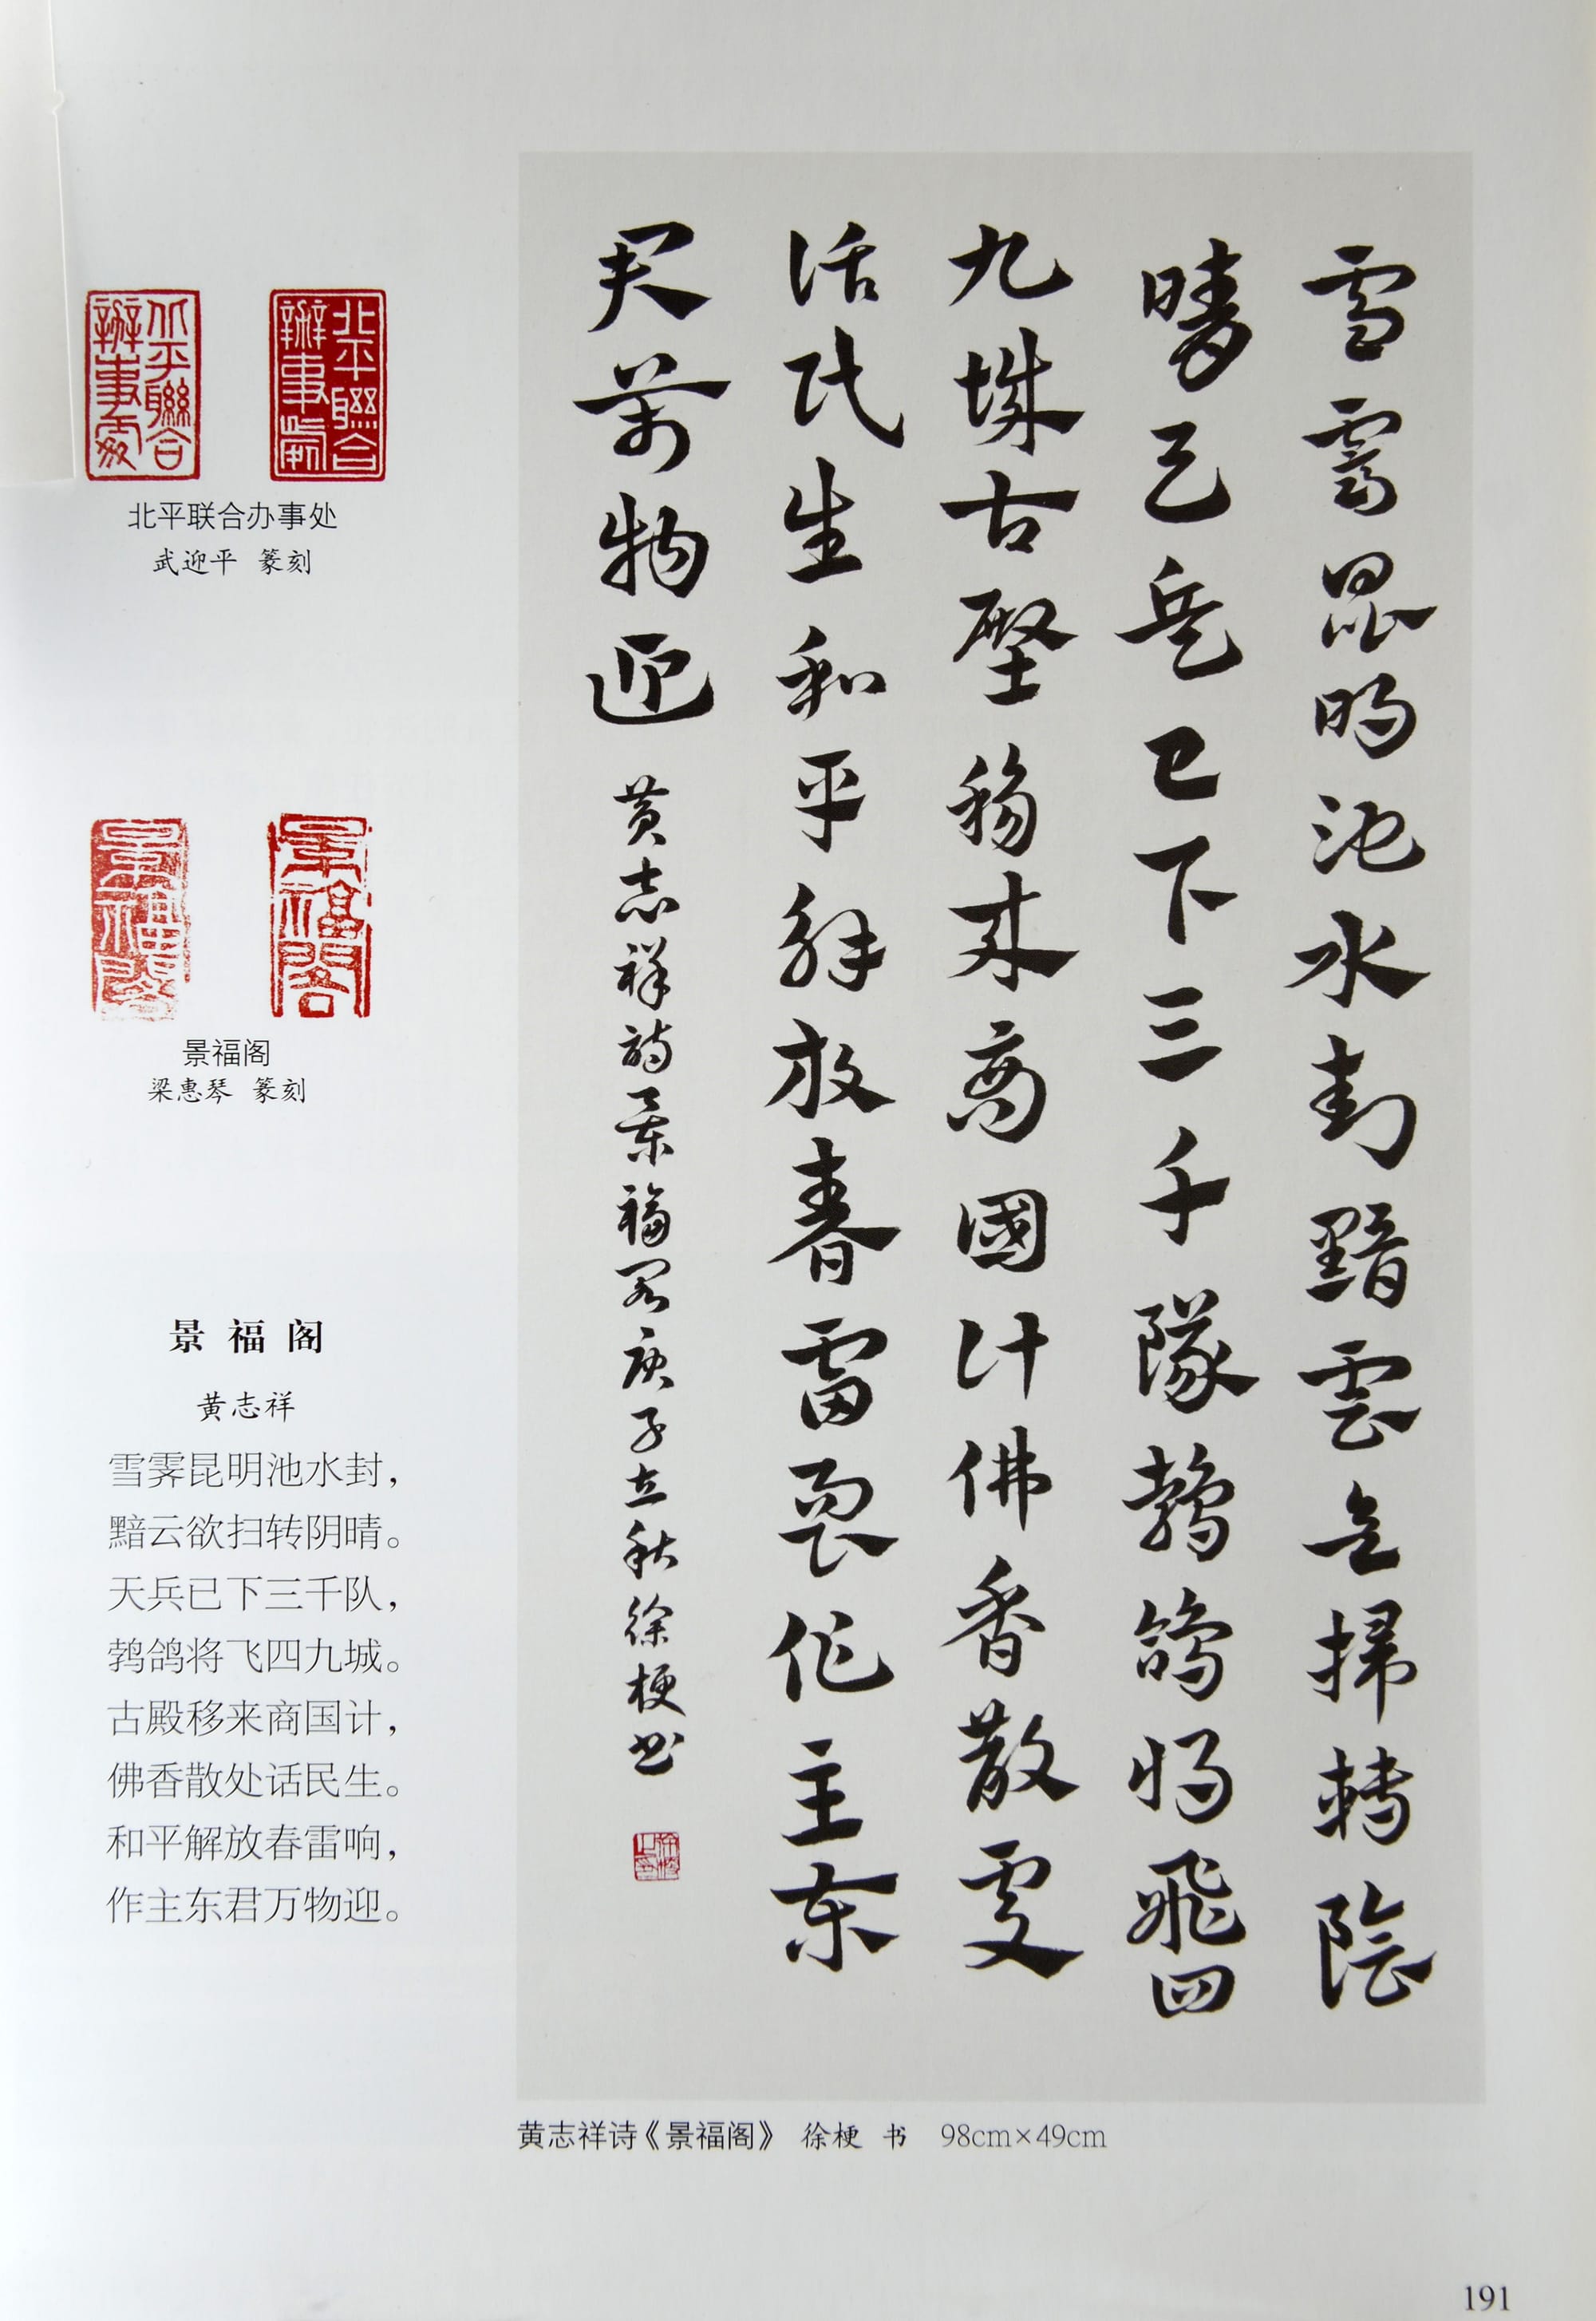 北平聯合
辦事處
北平聯合
辦事處
北平联合办事处
武迎平 篆刻
景福閣
景福閣
景福阁
梁惠琴 篆刻
景福阁
黄志祥
雪霁昆明池水封，
黯云欲扫转阴晴。
天兵已下三千队，
鹁鸽将飞四九城。
古殿移来商国计，
佛香散处话民生。
和平解放春雷响，
作主东君万物迎。
雪霽昆明池水封黯雲掃轉陰
晴天兵已下三千隊鵓鴿將飛四
九城古殿移來商國計佛香散處
話民生和平解放春雷響作主东
君萬物迎 黄志祥詩景福閣庚子立秋徐梗书
黄志祥诗《景福阁》 徐梗 书 98cm×49cm
191